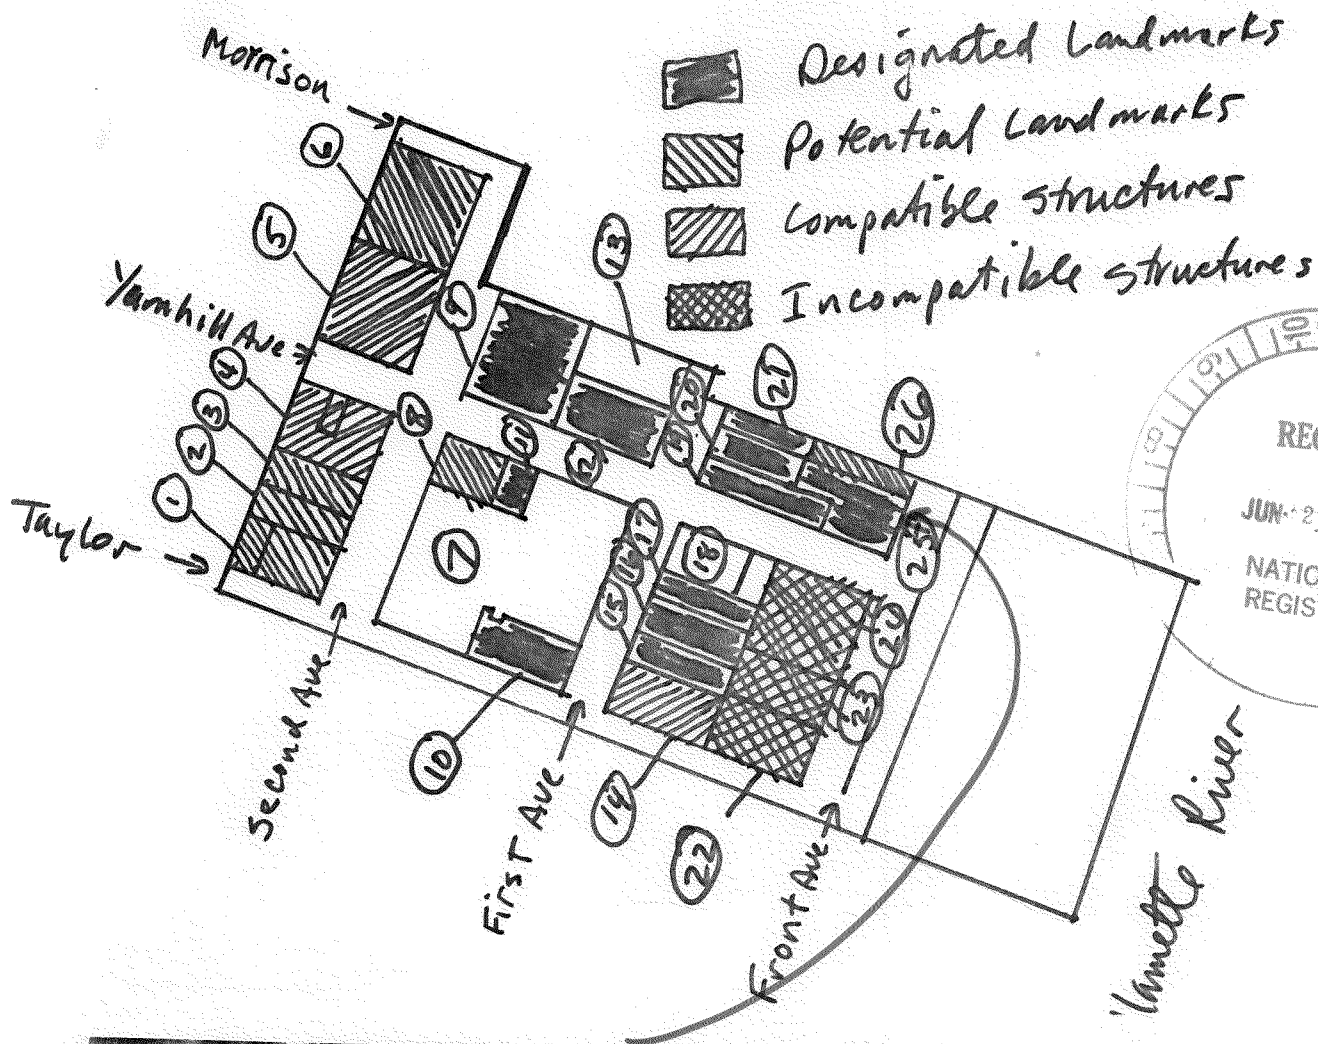 Morrison
Designated Landmarks
Potential Landmarks
Compatible structures
Incompatible structures
Yamhill Ave
Taylor
Second Ave
First Ave
Front Ave
'lamette River
1
2
3
4
5
6
7
8
9
10
11
12
13
14
15
16
17
18
19
20
21
22
23
24
25
26
REC
JUN 2
NATIO
REGIS